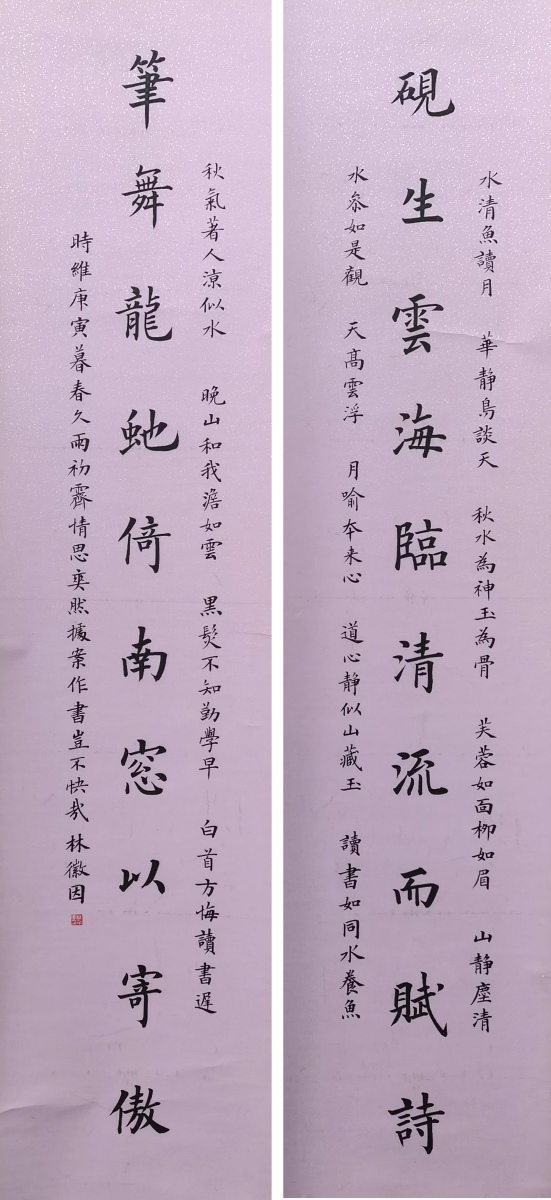 水清魚讀月　華靜鳥談天　秋水為神玉為骨　芙蓉如面柳如眉　山靜塵清
硯生雲海臨清流而賦詩
水叅如是觀　天高雲浮　月喻本来心　道心靜似山藏玉　讀書如同水養魚
秋氣著人涼似水　晚山和我澹如雲　黑髮不知勤學早　白首方悔讀書遲
筆舞龍虵倚南窓以寄傲
時維庚寅暮春久雨初霽情思奕然據案作書豈不快哉 林徽因